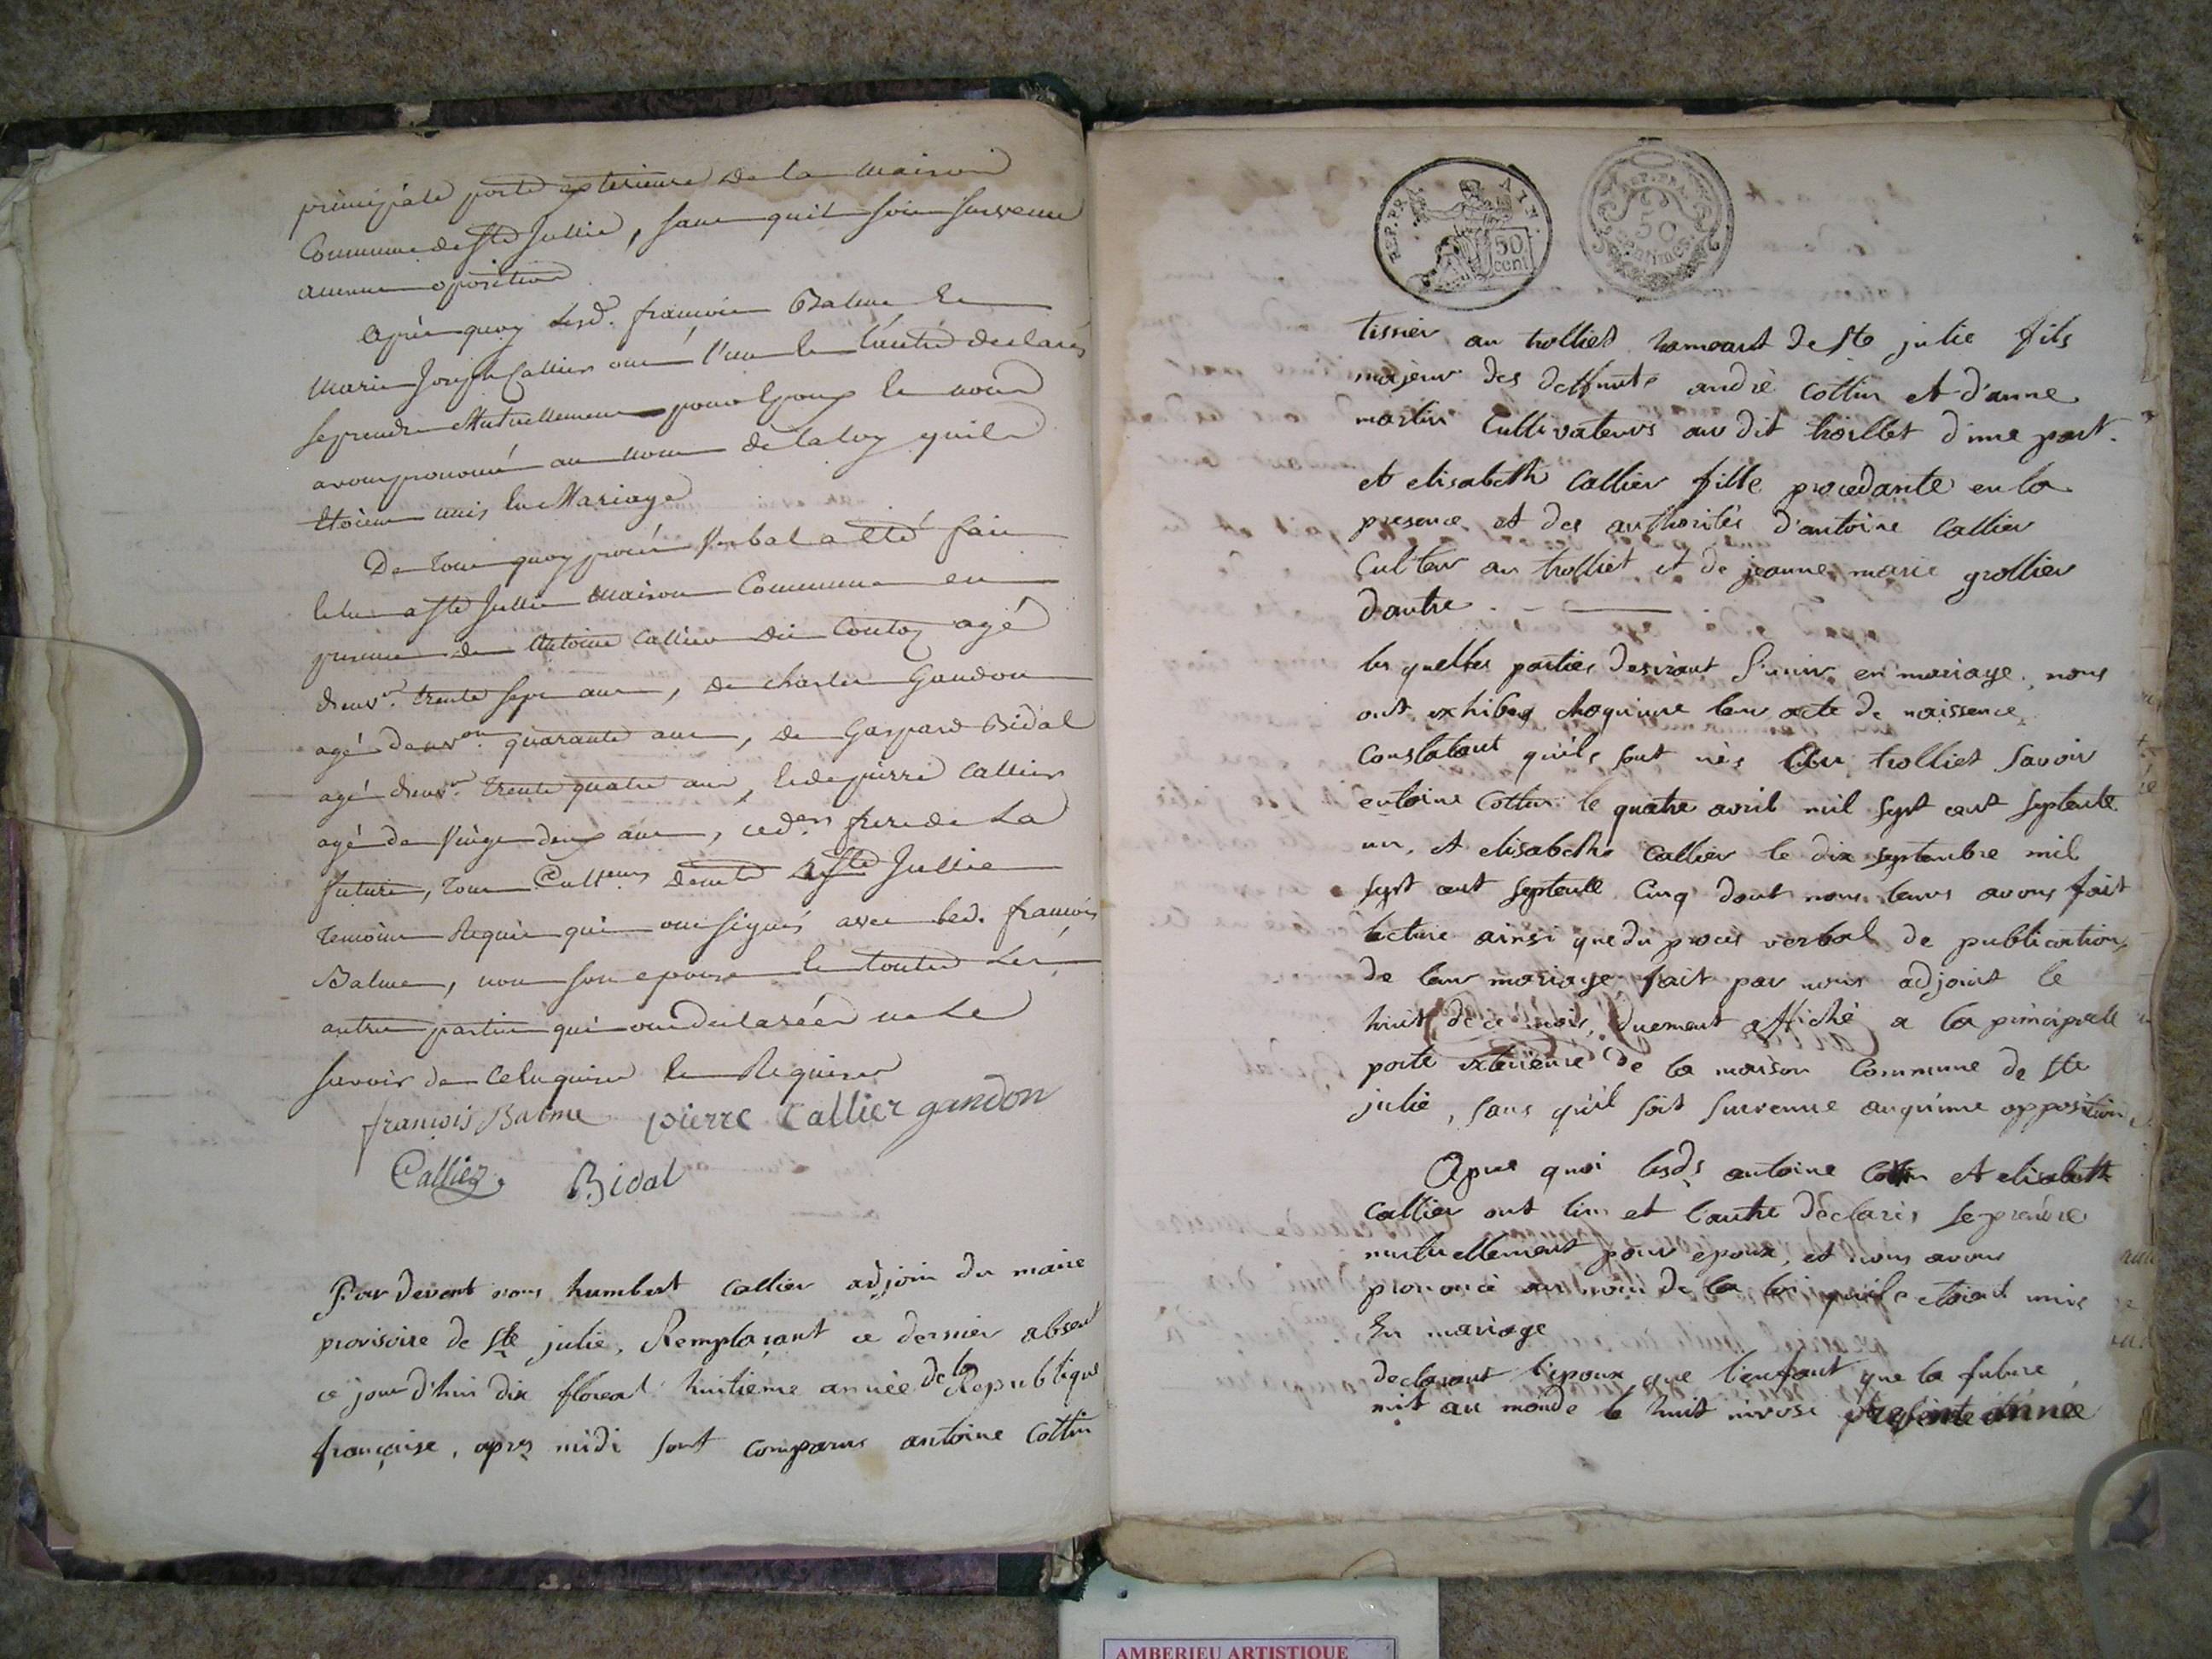 principale porte exterieure de la Maison
Commune de Ste Jullie, sans quil soit survenue
aucune oposition
Après quoy lesd. françois Balme et
Marie Joseph Callier ont l'un et l'autre declarés
se prendre Mutuellement pour Epoux et nous
avons prononcé au nom de la loy quils
Etoient unis En Mariage
De tout quoy procès Verbal a été fait
et lu a Ste Jullie Maison Commune en
presence de Antoine Callier dit Contoz agé
denvn. trente sept ans, de Charles Gandon
agé denvon. quarante ans, de Gaspard Bidal
agé denvn. trente quatre ans, et de pierre Callier
agé de Vingt deux ans, ced.er frere de La
future, tous Culteurs demts a Ste Jullie
temoins Requis qui ont signés avec led. françois
Balme, non son epouse et toutes Les
autres parties qui ont declarées ne Le
savoir de ce enquises et Requises
françois Balme pierre Callier gandon
Callier Bidal
Par devant nous humbert Callier adjoin du maire
provisoire de Ste julie, Remplaçant ce dernier absent
ce jour d'hui dix floreal huitieme année de la Republique
française, apres midi sont comparus antoine Cottin
REP. FRA
50
cent
REP. FRA
50
centimes
tissier au trolliet hameaut de Ste julie fils
majeur des deffunts andrè Cottin et d'anne
martin Cultivateurs au dit trolliet d'une part.
et elisabeth Callier fille procedante en la
presence et des authorités d'antoine Callier
Cul'teur au trolliet et de jeanne marie grollier
d'autre
les quelles parties desirant S'unir en mariage, nous
ont exhibez chaqu'une leur acte de naissence
Constatant qu'ils sont nès au trolliet Savoir
entoine Cottin le quatre avril mil sept cent septente
un, et elisabeth Callier le dix septembre mil
sept cent septente Cinq dont nous leurs avons fait
lecture ainsi que du proces verbal de publication
de leur mariage fait par nous adjoint le
huit de ce mois, duement affiché a la pincipalle
porte exterieure de la maison Commune de Ste
julie, sans qu'il soit survenue auqu'une opposition
Apres quoi lesds antoine Cottin et elisabeth
Callier ont l'un et l'autre declarés se prendre
mutuellement pour epoux, et nous avons
prononcè au nom de la loi qu'ils etoient unis
En mariage
declarant l'epoux que l'enfant que la future
mit au monde le huit nivose presente année
AMBERIEU ARTISTIQUE